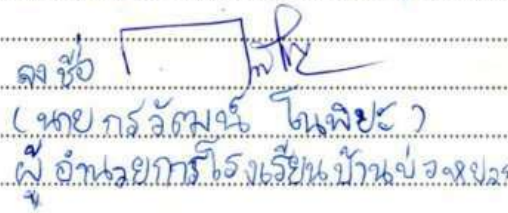 ลงชื่อ
(นายกรวัฒน์ โนพิยะ)
ผู้อำนวยการโรงเรียนบ้านบ่อหยวก